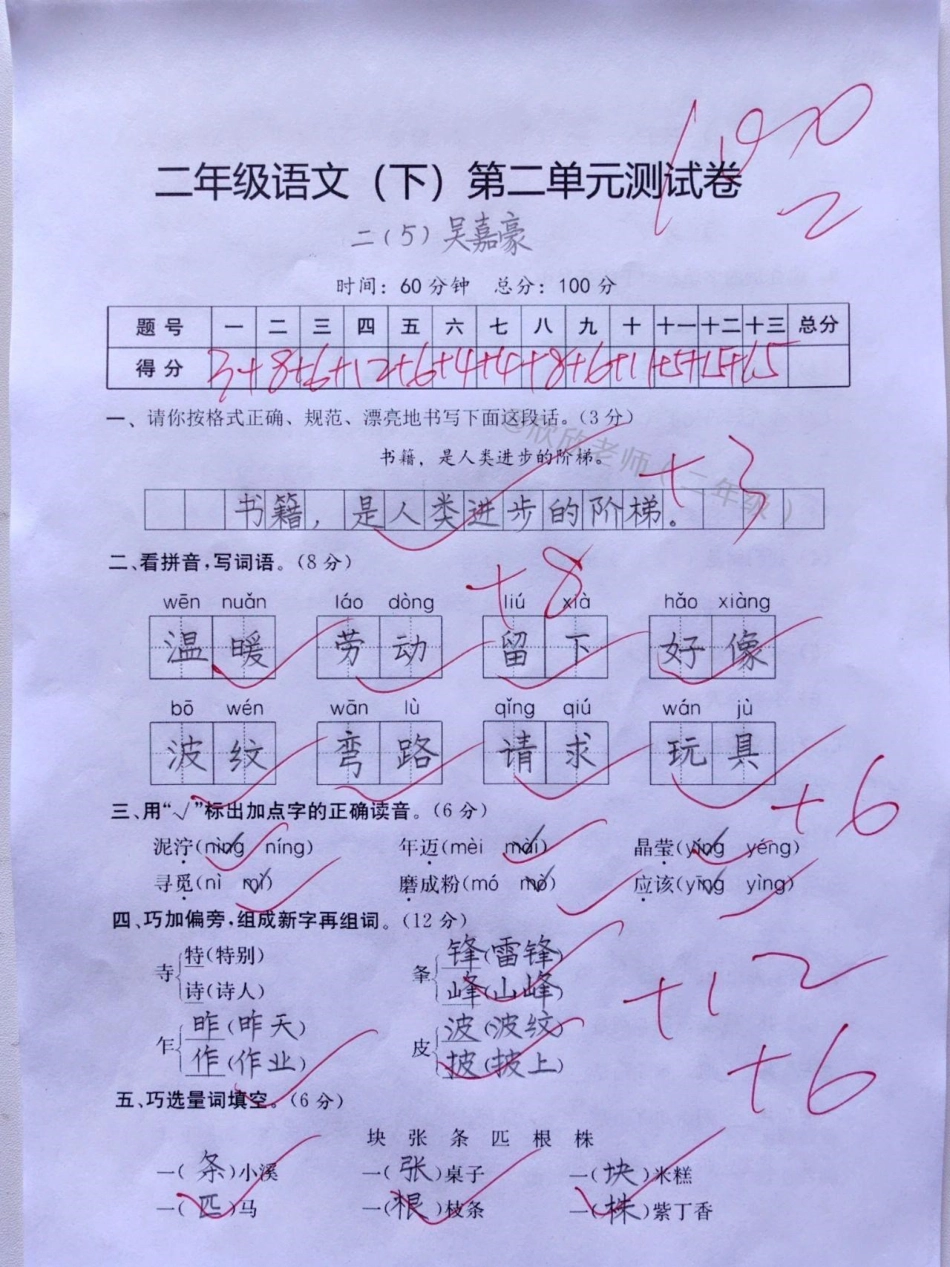 100
2
二年级语文（下）第二单元测试卷
二（5）吴嘉豪
时间：60分钟 总分：100分
题号 一 二 三 四 五 六 七 八 九 十 十一 十二 十三 总分
得分 3+8+6+12+6+4+4+8+6+11+5+15+15
一、请你按格式正确、规范、漂亮地书写下面这段话。（3分）
@欣欣老师（二年级）
书籍，是人类进步的阶梯。
+3
书籍，是人类进步的阶梯。
二、看拼音，写词语。（8分）
+8
wēn nuǎn láo dòng liú xià hǎo xiàng
温暖 劳动 留下 好像
bō wén wān lù qǐng qiú wán jù
波纹 弯路 请求 玩具
三、用“√”标出加点字的正确读音。（6分）
+6
泥泞(nìng níng) 年迈(mèi mài) 晶莹(yíng yéng)
寻觅(nì mì) 磨成粉(mó mò) 应该(yīng yìng)
四、巧加偏旁，组成新字再组词。（12分）
寺 特(特别) 夆 锋(雷锋)
诗(诗人) 峰(山峰)
+12
乍 昨(昨天) 皮 波(波纹)
作(作业) 披(披上)
+6
五、巧选量词填空。（6分）
块 张 条 匹 根 株
一(条)小溪 一(张)桌子 一(块)米糕
一(匹)马 一(根)枝条 一(株)紫丁香